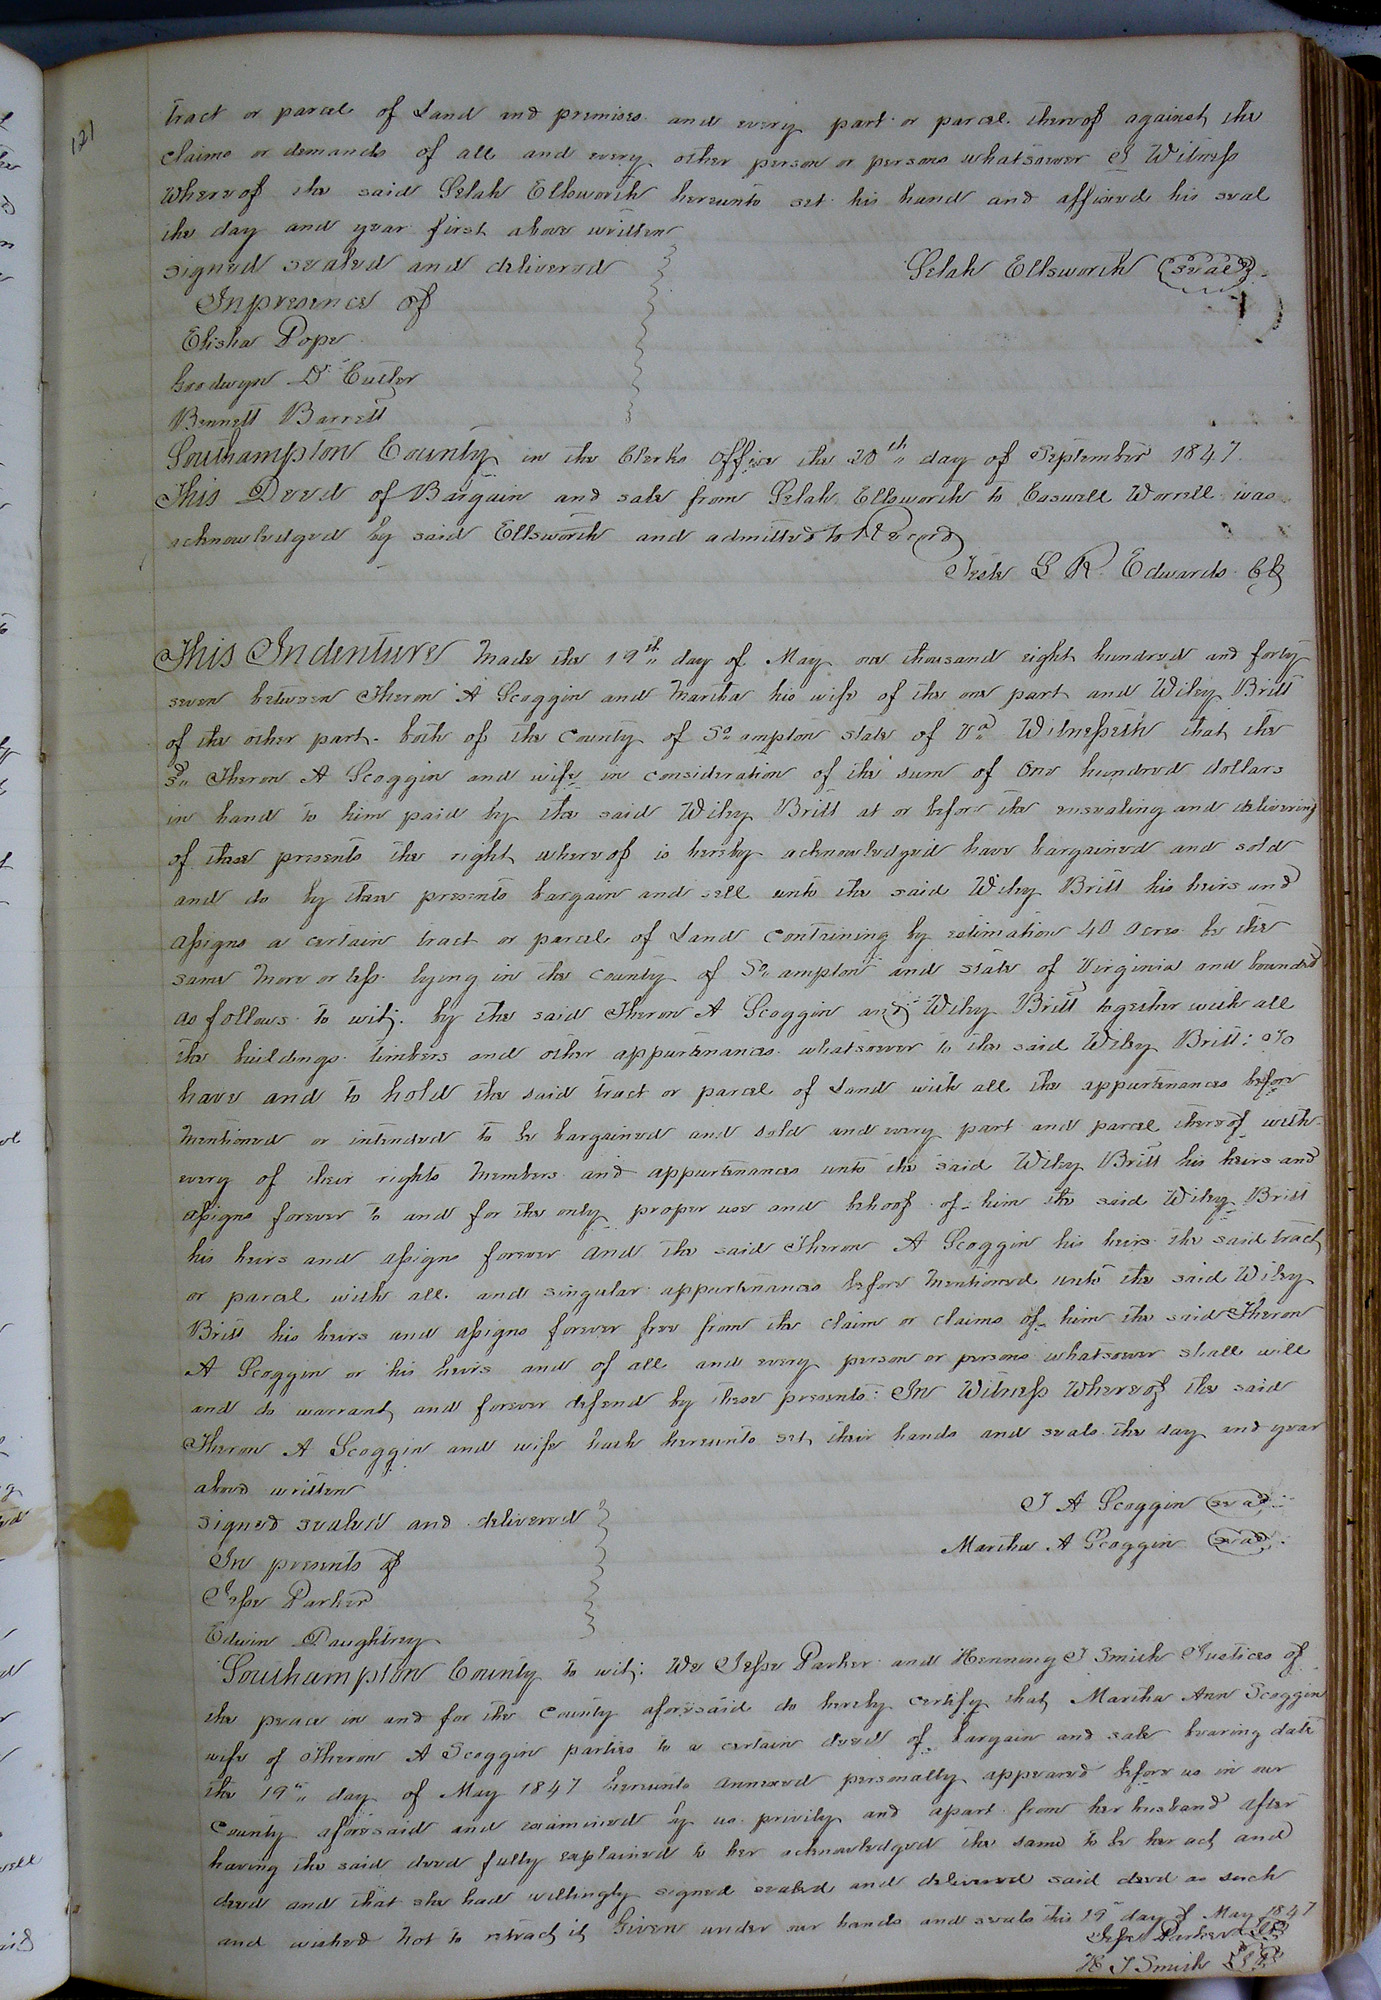 121
tract or parcel of Land and premises and every part or parcel thereof against the
claims or demands of all and every other person or persons whatsoever I Witness
Whereof the said Selah Ellsworth hereunto set his hand and affixed his seal
the day and year first above written
signed sealed and delivered
Selah Ellsworth (seal)
In presence of
Elisha Pope
Goodwyn D Cutler
Bennett Barrett
Southampton County in the Clerks Office the 20th day of September 1847
This Deed of Bargain and sale from Selah Ellsworth to Caswell Worrell was
acknowledged by said Ellsworth and admitted to Record
Teste L R Edwards Clk
This Indenture Made the 19th day of May one thousand eight hundred and forty
seven between Theron A Scoggin and Martha his wife of the one part and Wiley Britt
of the other part both of the County of So ampton state of Va Witnesseth that the
sd Theron A Scoggin and wife in consideration of the sum of One hundred dollars
in hand to him paid by the said Wiley Britt at or before the ensealing and delivering
of these presents the right whereof is hereby acknowledged have bargained and sold
and do by these presents bargain and sell unto the said Wiley Britt his heirs and
assigns a certain tract or parcel of Land Containing by estimation 40 acres be the
same More or less lying in the County of So ampton and state of Virginia and bounded
as follows to wit; by the said Theron A Scoggin and Wiley Britt together with all
the buildings timbers and other appurtenances whatsoever to the said Wiley Britt: To
have and to hold the said tract or parcel of Land with all the appurtenances before
Mentioned or intended to be bargained and sold and every part and parcel thereof with
every of their rights Members and appurtenances unto the said Wiley Britt his heirs and
assigns forever to and for the only proper use and behoof of him the said Wiley Britt
his heirs and assigns forever and the said Theron A Scoggin his heirs the said tract
or parcel with all and singular appurtenances before Mentioned unto the said Wiley
Britt his heirs and assigns forever free from the claim or claims of him the said Theron
A Scoggin or his heirs and of all and every person or persons whatsoever shall will
and do warrant and forever defend by these presents: In Witness Whereof the said
Theron A Scoggin and wife hath hereunto set their hands and seals the day and year
above written
T A Scoggin (seal)
signed sealed and delivered
Martha A Scoggin (seal)
In presents of
Jesse Parker
Edwin Daughtrey
Southampton County to wit; We Jesse Parker and Henning J Smith Justices of
the peace in and for the County aforesaid do hereby certify that Martha Ann Scoggin
wife of Theron A Scoggin parties to a certain deed of bargain and sale bearing date
the 19th day of May 1847 hereunto annexed personally appeared before us in our
County aforesaid and examined by us privily and apart from her husband after
having the said deed fully explained to her acknowledged the same to be her act and
deed and that she had willingly signed sealed and delivered said deed as such
and wished Not to retract it Given under our hands and seals this 19 day of May 1847
Jesse Parker
H J Smith